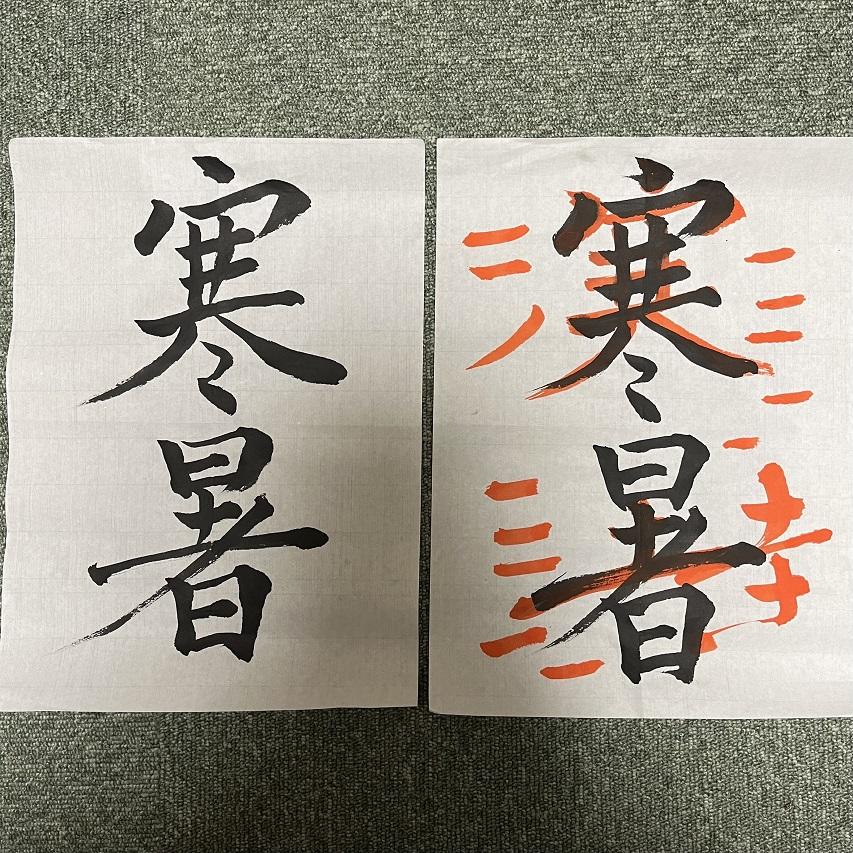 寒暑
寒暑